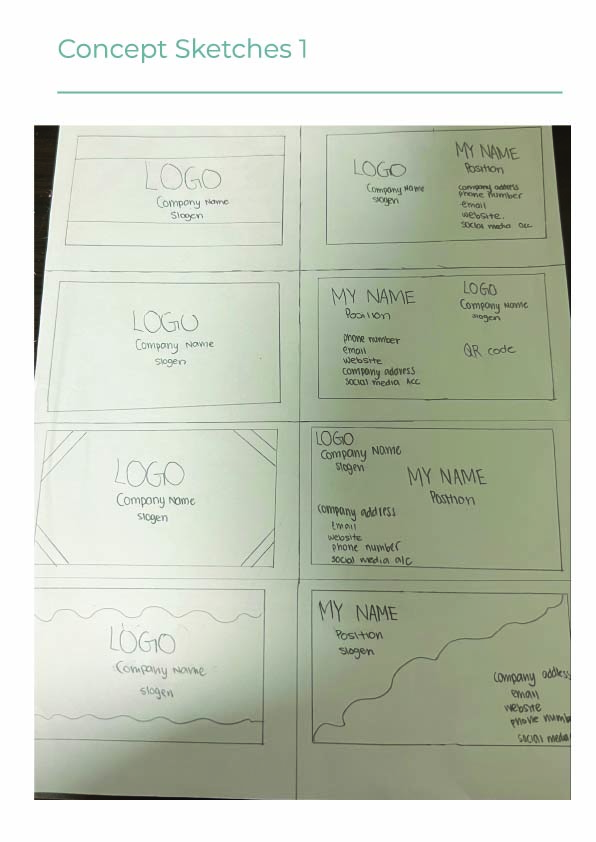 Concept Sketches 1
LOGO
Company Name
Slogen
LOGO
Company Name
slogen
MY NAME
Position
company address
phone number
email
website.
social media acc
LOGO
Company Name
slogen
MY NAME
Position
phone number
email
website
company address
social media Acc
LOGO
Company Name
slogen
QR code
LOGO
Company Name
slogen
LOGO
Company Name
slogen
MY NAME
Position
company address
email
website
phone number
social media a/c
LOGO
Company Name
slogen
MY NAME
Position
slogen
company address
email
website
phone numb
social media